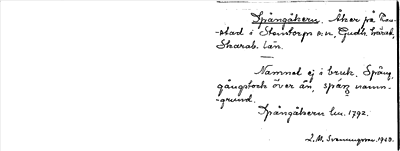 Spångåkern. Åker på
-stad i Stentorps s:n, Gudh. härad,
Skarab. län.
Namnet ej i bruk. Spång,
gångstock över ån, spång namn-
-grund.
Spångåkern lm. 1792.